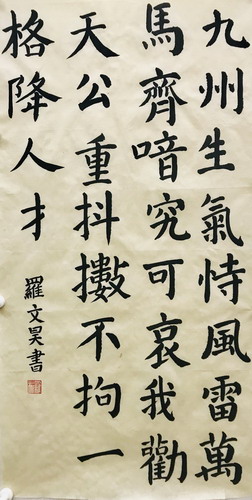 九州生氣恃風雷萬
馬齊喑究可哀我勸
天公重抖擻不拘一
格降人才
羅文昊書